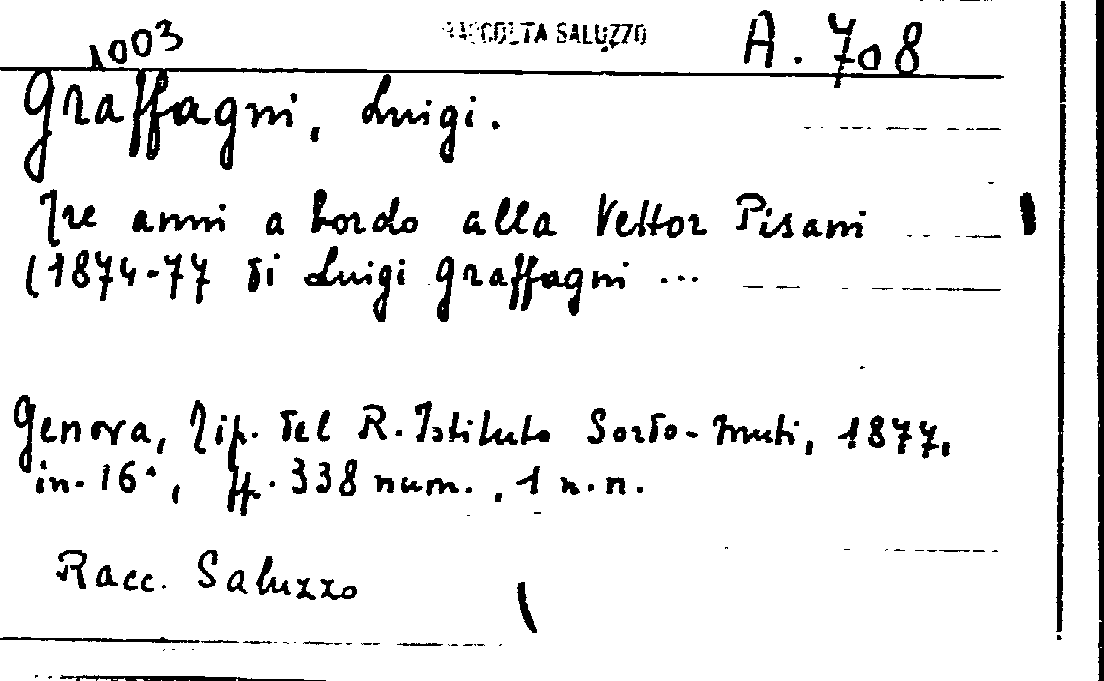 1003 RACCOLTA SALUZZO A. 708
Graffagni, Luigi.
Tre anni a bordo alla Vettor Pisani
(1874-77 di Luigi Graffagni ...
Genova, Tip. del R. Istituto Sordo-muti, 1877.
in-16°, pp. 338 num., 1 n.n.
Racc. Saluzzo